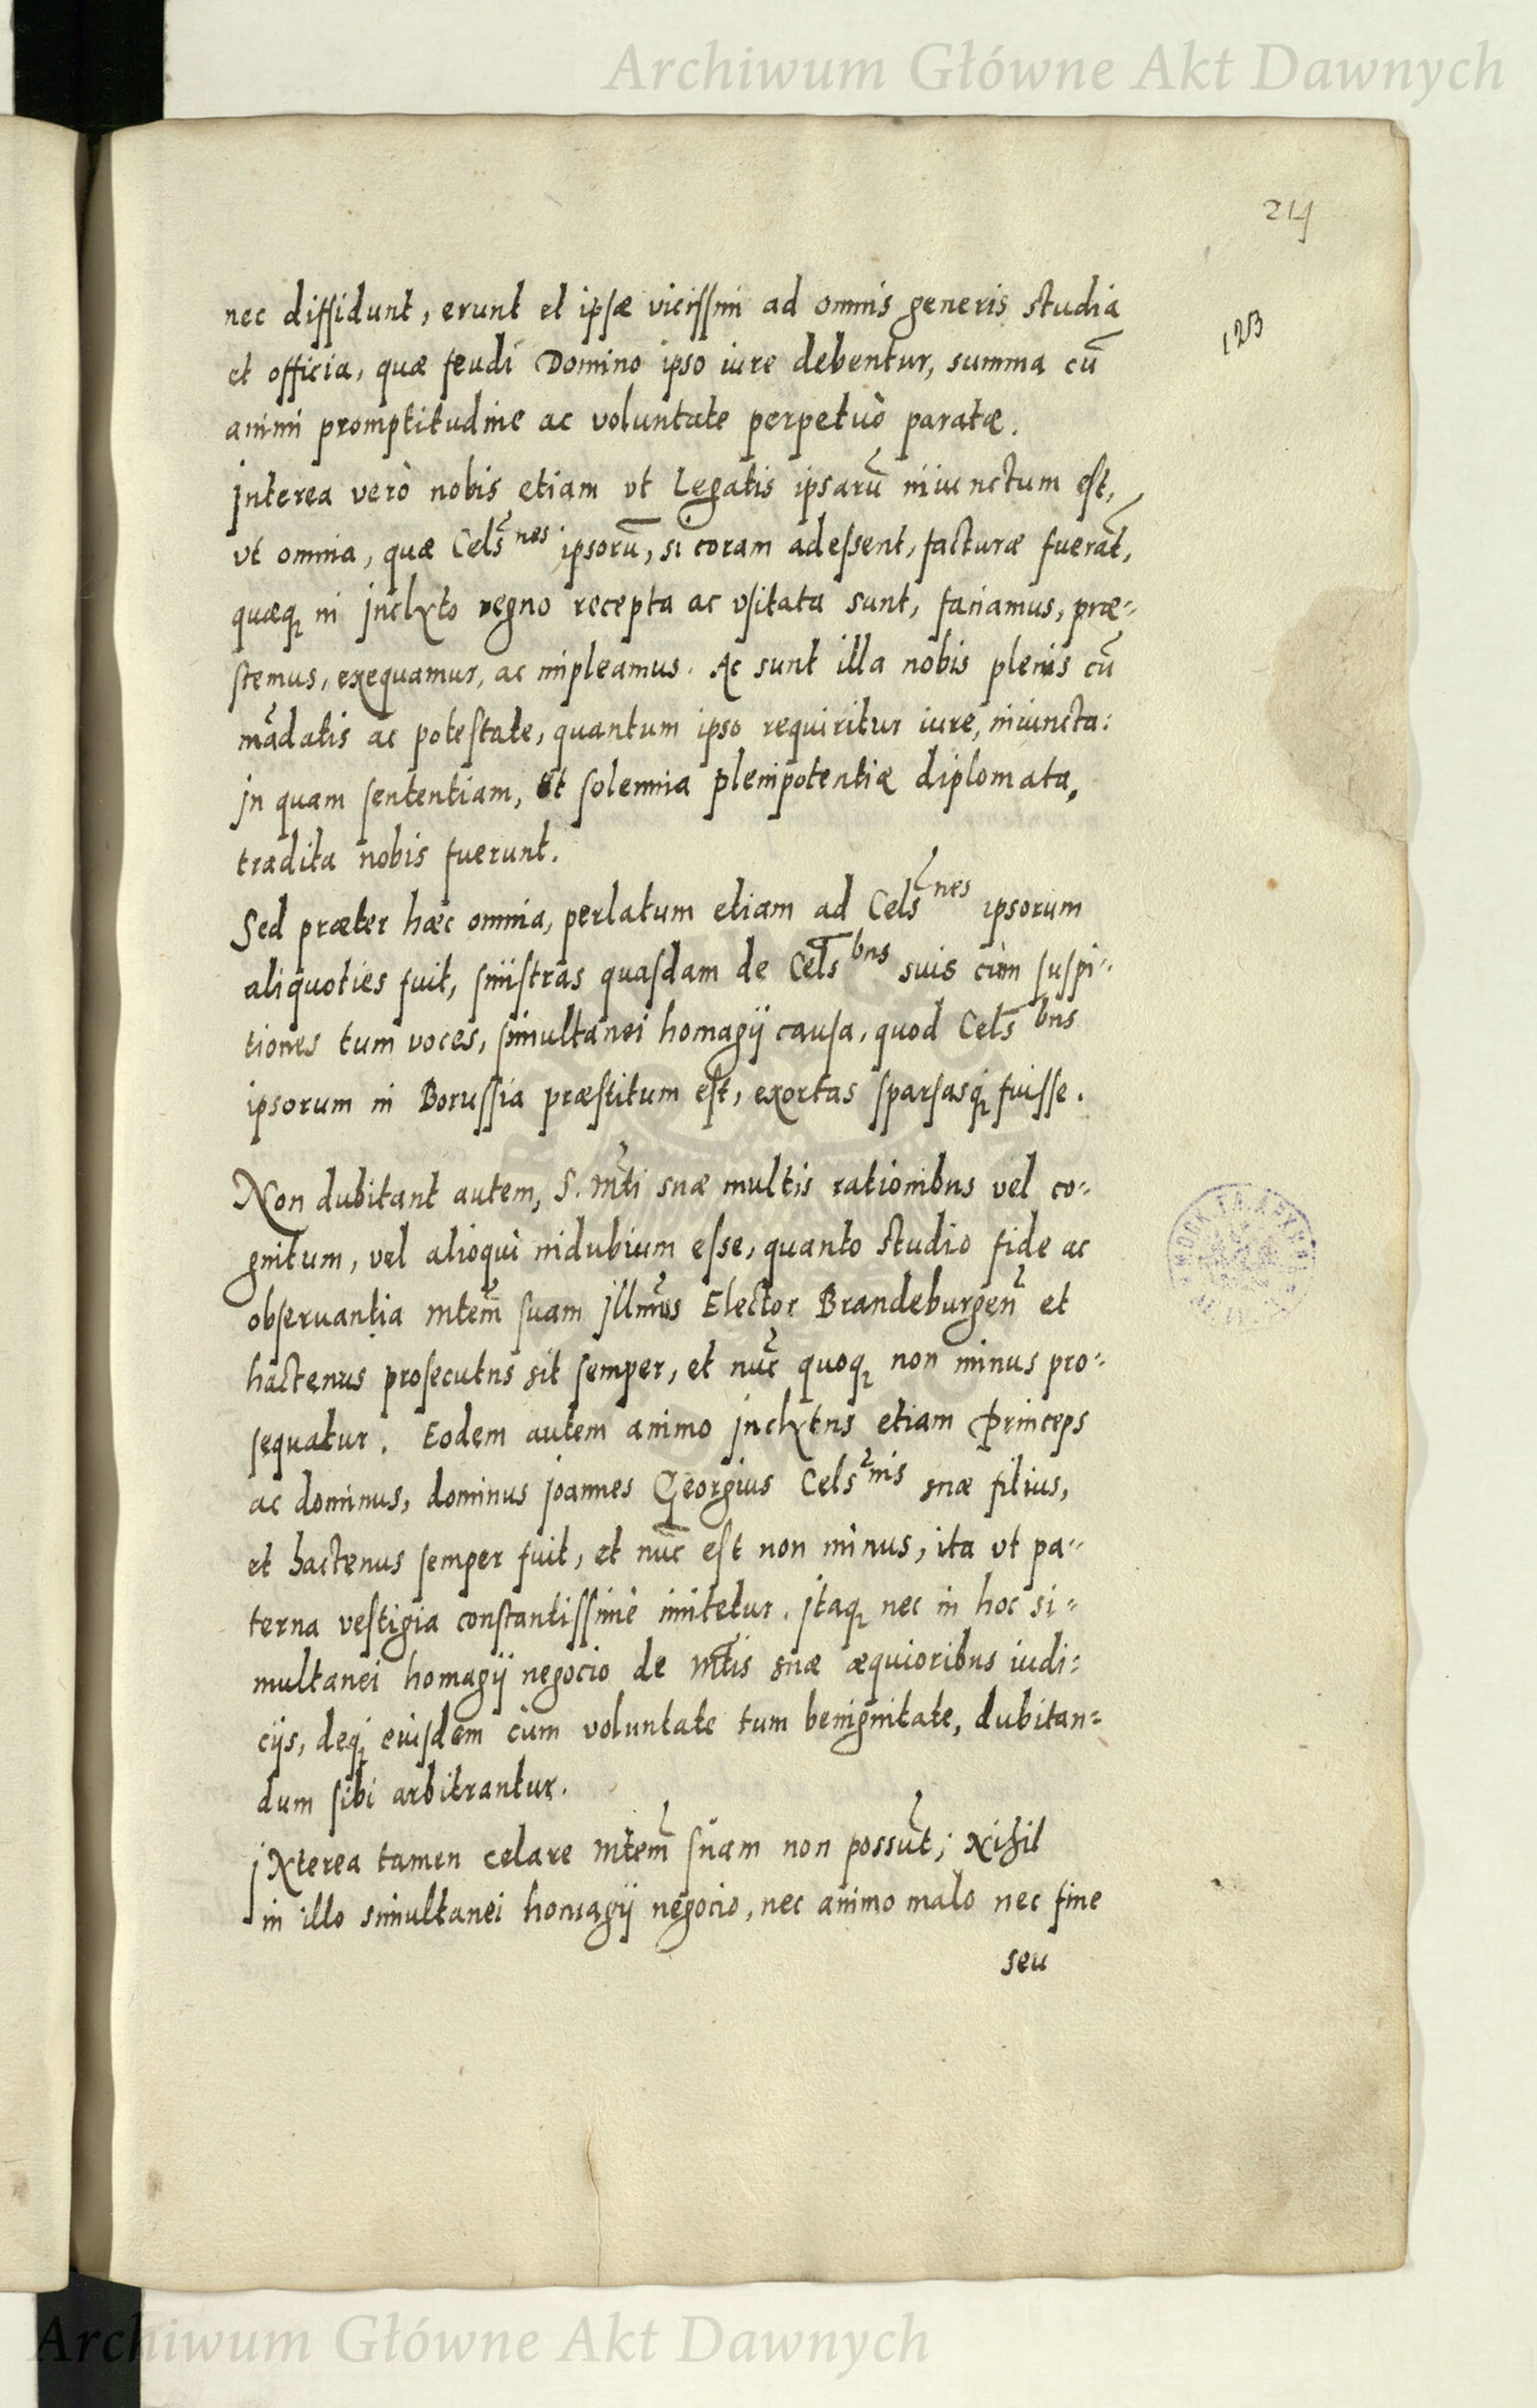 Archiwum Główne Akt Dawnych
214
123
nec diffidunt, erunt et ipsæ vicissim ad omnis generis studia
et officia, quæ feudi Domino ipso iure debentur, summa cũ
animi promptitudine ac voluntate perpetuò paratæ.
Interea verò nobis etiam vt Legatis ipsarũ iniunctum est,
vt omnia, quæ Cels̃nes ipsorũ, si coram adessent, facturæ fuerãt,
quæq; in inclyto regno recepta ac vsitata sunt, faciamus, præ-
stemus, exequamur, ac impleamus. Ac sunt illa nobis plenis cũ
mãdatis ac potestate, quantum ipso requiritur iure, iniuncta:
in quam sententiam, et solennia plenipotentiæ diplomata,
tradita nobis fuerunt.
Sed præter hæc omnia, perlatum etiam ad Cels̃nes ipsorum
aliquoties fuit, sinistras quasdam de Cels̃bus suis cùm suspi-
tiones tum voces, simultanei homagij causa, quod Cels̃bus
ipsorum in Borussia præstitum est, exortas sparsasq; fuisse.
Non dubitant autem, S. Mt̃i suæ multis rationibus vel co-
gnitum, vel alioqui indubium esse, quanto studio fide ac
obseruantia Mtem̃ suam Illmũs Elector Brandeburgeñ et
hactenus prosecutus sit semper, et nũc quoq; non minus pro-
sequatur. Eodem autem animo inclytus etiam Princeps
ac dominus, dominus Joannes Georgius Cels̃nis suæ filius,
et hactenus semper fuit, et nũc est non minus, ita vt pa-
terna vestigia constantissimè imitetur. Itaq; nec in hoc si-
multanei homagij negocio de Mt̃is suæ æquioribus iudi-
cijs, deq; eiusdem cùm voluntate tum benignitate, dubitan-
dum sibi arbitrantur.
INterea tamen celare Mtem̃ suam non possũt; Nihil
in illo simultanei homagij negocio, nec animo malo nec fine
seu
Archiwum Główne Akt Dawnych